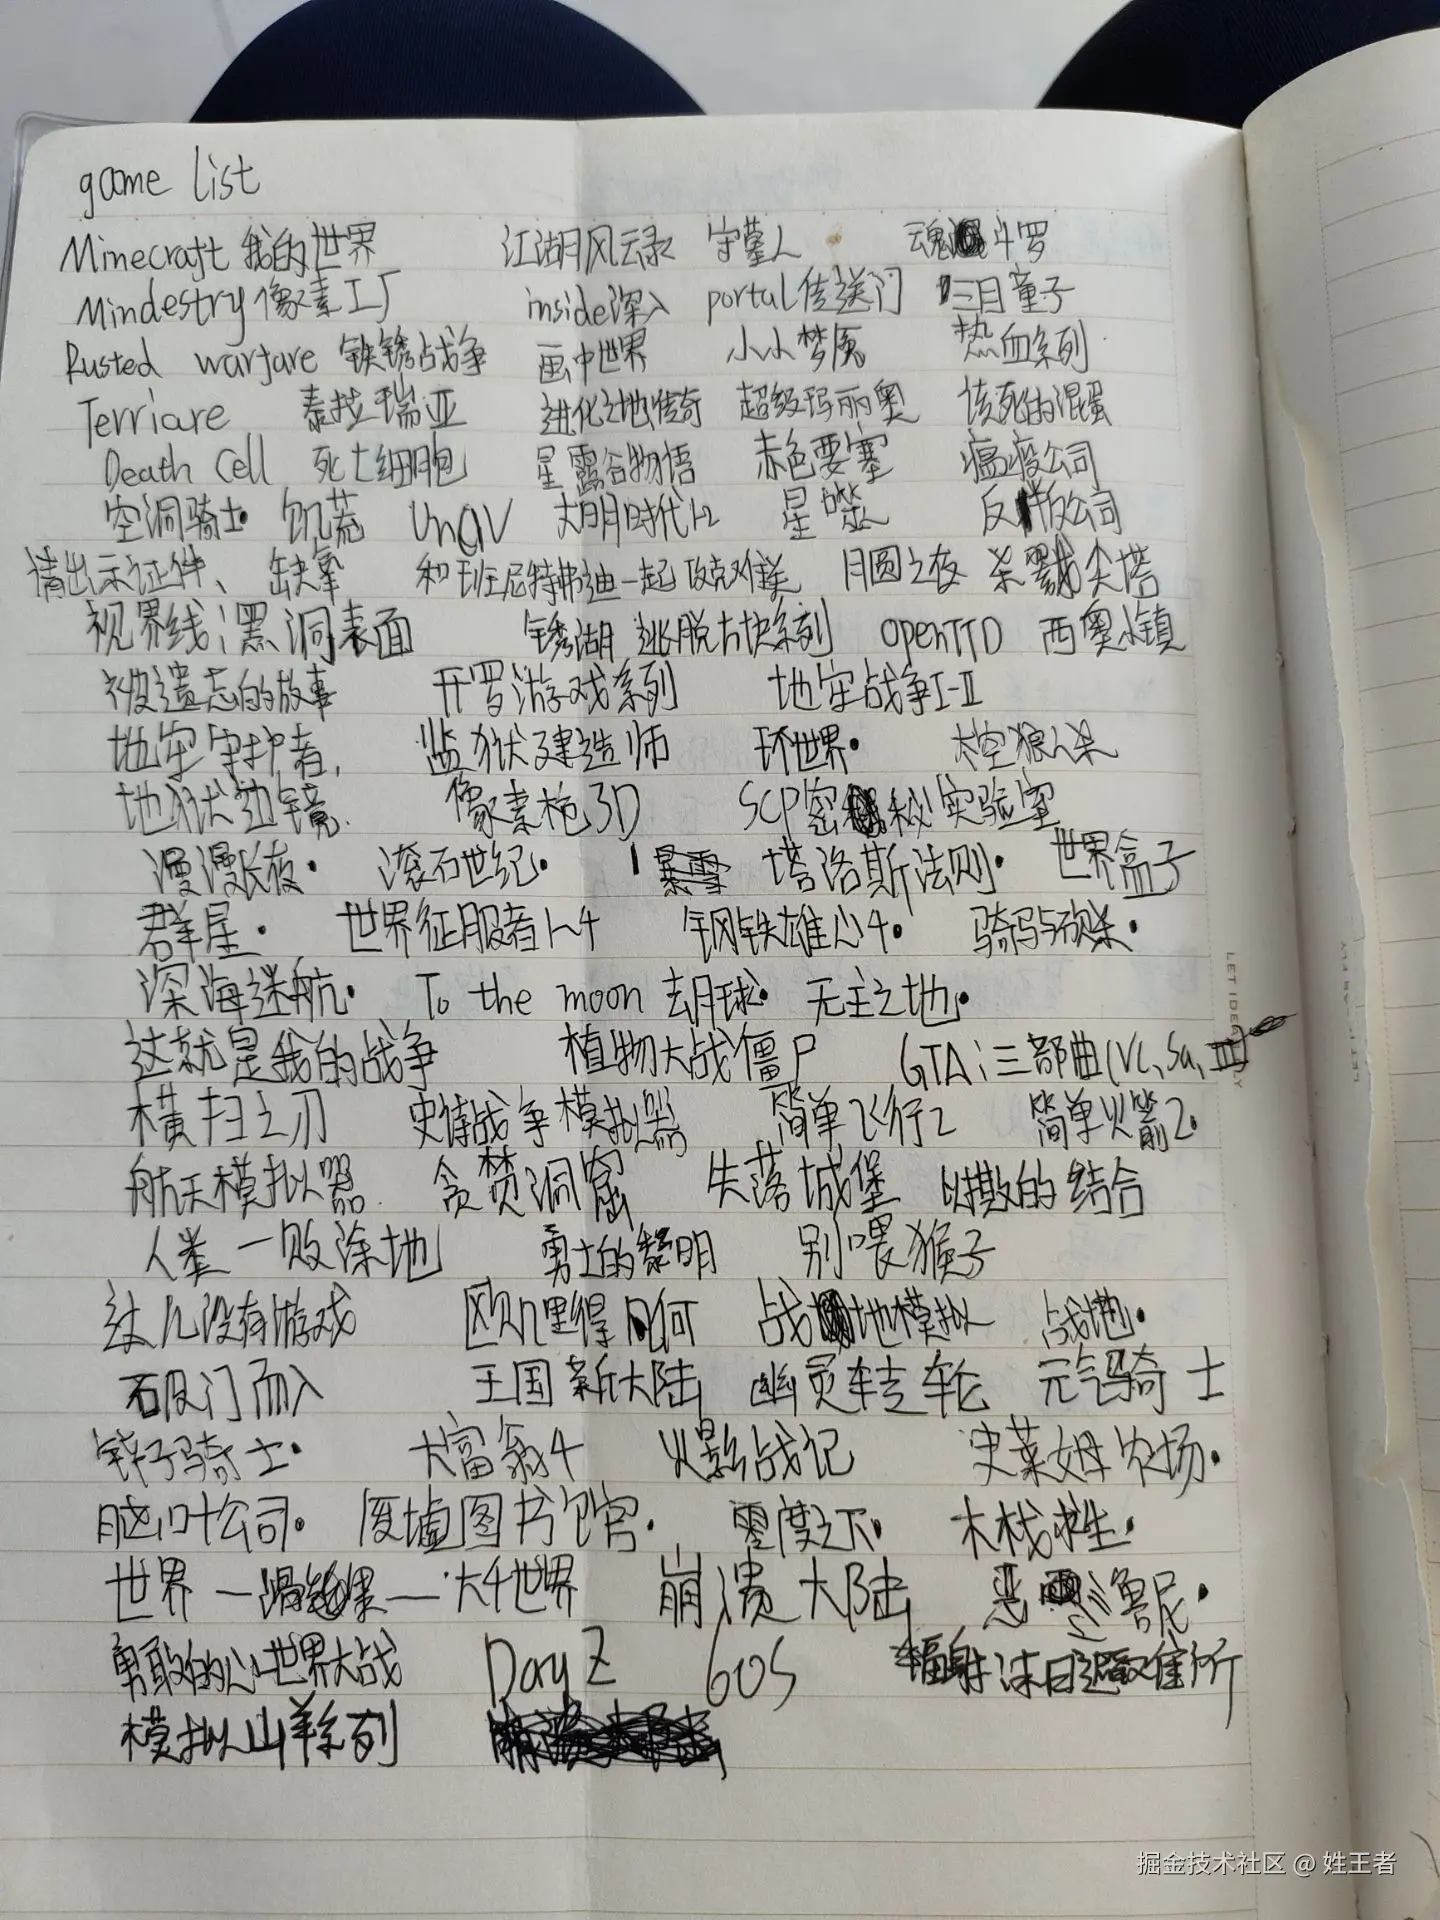 game list
Minecraft 我的世界 江湖风云录 守墓人 魂斗罗
Mindestry 像素工厂 inside深入 portal传送门 三目童子
Rusted warfare 铁锈战争 画中世界 小小梦魇 热血系列
Terriare 泰拉瑞亚 进化之地传奇 超级玛丽奥 该死的混蛋
Death Cell 死亡细胞 星露谷物语 赤色要塞 瘟疫公司
空洞骑士· 饥荒 文明时代1-2 星噬 反叛公司
请出示证件、 缺氧 和班尼特弗迪一起攻克难关 月圆之夜 杀戮尖塔
视界线:黑洞表面 锈湖 逃脱方块系列 OpenTTD 西奥小镇
被遗忘的故事 开罗游戏系列 地牢战争I-II
地牢守护者, 监狱建造师 环世界· 太空狼人杀
地狱边镜. 像素枪3D SCP密秘实验室
漫漫长夜· 滚石世纪· 塔洛斯法则· 世界盒子
群星· 世界征服者1~4 钢铁雄心4· 骑马与砍杀·
深海迷航· To the moon 去月球· 无主之地·
这就是我的战争 植物大战僵尸 GTA:三部曲(VC、Sa、III)
横扫之刃 史诗战争模拟器 简单飞行2 简单火箭2·
航天模拟器 贪婪洞窟 失落城堡 以撒的结合
人类一败涂地 勇士的黎明 别喂猴子
这儿没有游戏 欧几里得几何 战地模拟 战地·
破门而入 王国新大陆 幽灵转轮 元气骑士
铲子骑士· 大富翁4 火影战记 史莱姆农场·
脑叶公司· 废墟图书馆· 零度之下· 木栈求生·
世界 — 大千世界 崩溃大陆 恶 鲁尼·
勇敢的心:世界大战 DayZ 60S 辐射 末日避难所
模拟山羊系列
掘金技术社区 @ 姓王者